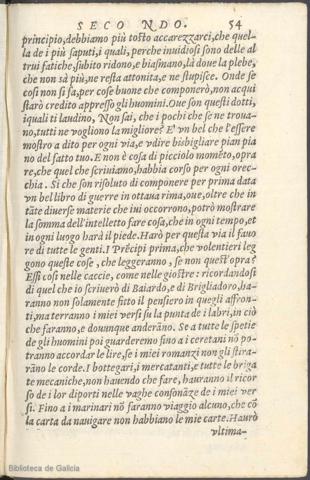 SECONDO. 54
principio, debbiamo più tosto accarezzarci, che quel-
la de i più saputi, i quali, perche inuidiosi sono delle al
trui fatiche, subito ridono, e biasmano, là doue la plebe,
che non sà più, ne resta attonita, e ne stupisce. Onde se
cosi non si fa, per cose buone che componerò, non acqui
starò credito appresso gli huomini. Oue son questi dotti,
i quali ti laudino, Non sai, che i pochi che se ne troua-
no, tutti ne vogliono la migliore? E' vn bel che l'essere
mostro a dito per ogni via, e vdire bisbigliare pian pia
no del fatto tuo. E non è cosa di picciolo momẽto, opra
re, che quel che scriuiamo, habbia corso per ogni orec-
chia. Si che son risoluto di componere per prima data
vn bel libro di guerre in ottaua rima, oue, oltre che in
tãte diuerse materie che iui occorrono, potrò mostrare
la somma dell'intelletto fare cosa, che in ogni tempo, et
in ogni luogo harà il piede. Harò per questa via il fauo
re di tutte le genti. I Prẽcipi prima, che volentieri leg
gono queste cose, che leggeranno, se non quest'opra?
Essi cosi nelle caccie, come nelle giostre: ricordandosi
di quel che io scriuerò di Baiardo, e di Brigliadoro, ha-
ranno non solamente fitto il pensiero in quegli affron-
ti, ma terranno i miei versi su la punta de i labri, in ciò
che faranno, e douunque anderãno. Se a tutte le spetie
de gli huomini poi guarderemo fino a i ceretani nõ po-
tranno accordar le lire, se i miei romanzi non gli stira-
rãno le corde. I bottegari, i mercatanti, e tutte le briga
te mecaniche, non hauendo che fare, hauranno il ricor
so de i lor diporti nelle vaghe consonãze de i miei ver
si. Fino a i marinari nõ faranno viaggio alcuno, che cõ
la carta da nauigare non habbiano le mie carte. Haurò
vltima-
Biblioteca de Galicia